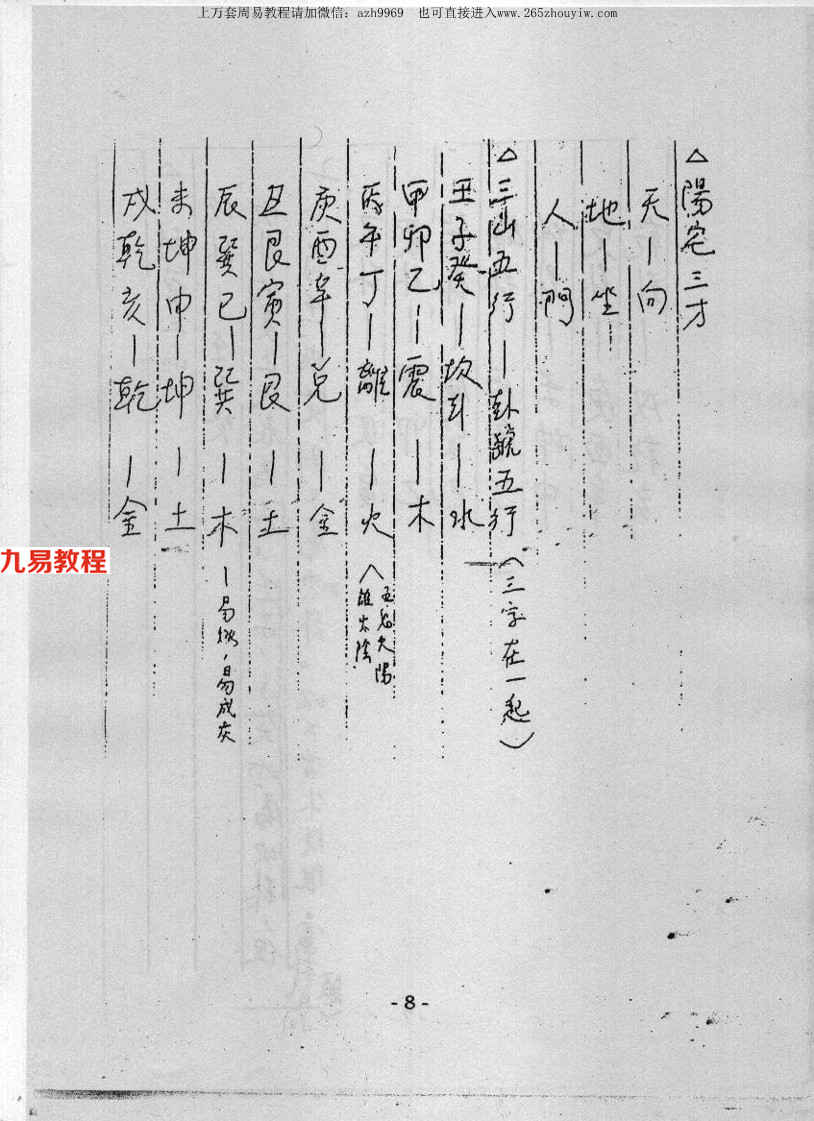 上万套周易教程请加微信：azh9969 也可直接进入www.265zhouyiw.com
△陽宅三才
天－向
地－坐
人－門
△三山五行－卦號五行（三字在一起）
壬子癸－坎卦－水
甲卯乙－震－木
丙午丁－離－火
庚酉辛－兌－金
丑艮寅－艮－土
辰巽巳－巽－木－易燃，易成灰
未坤申－坤－土
戌乾亥－乾－金
九易教程
- 8 -